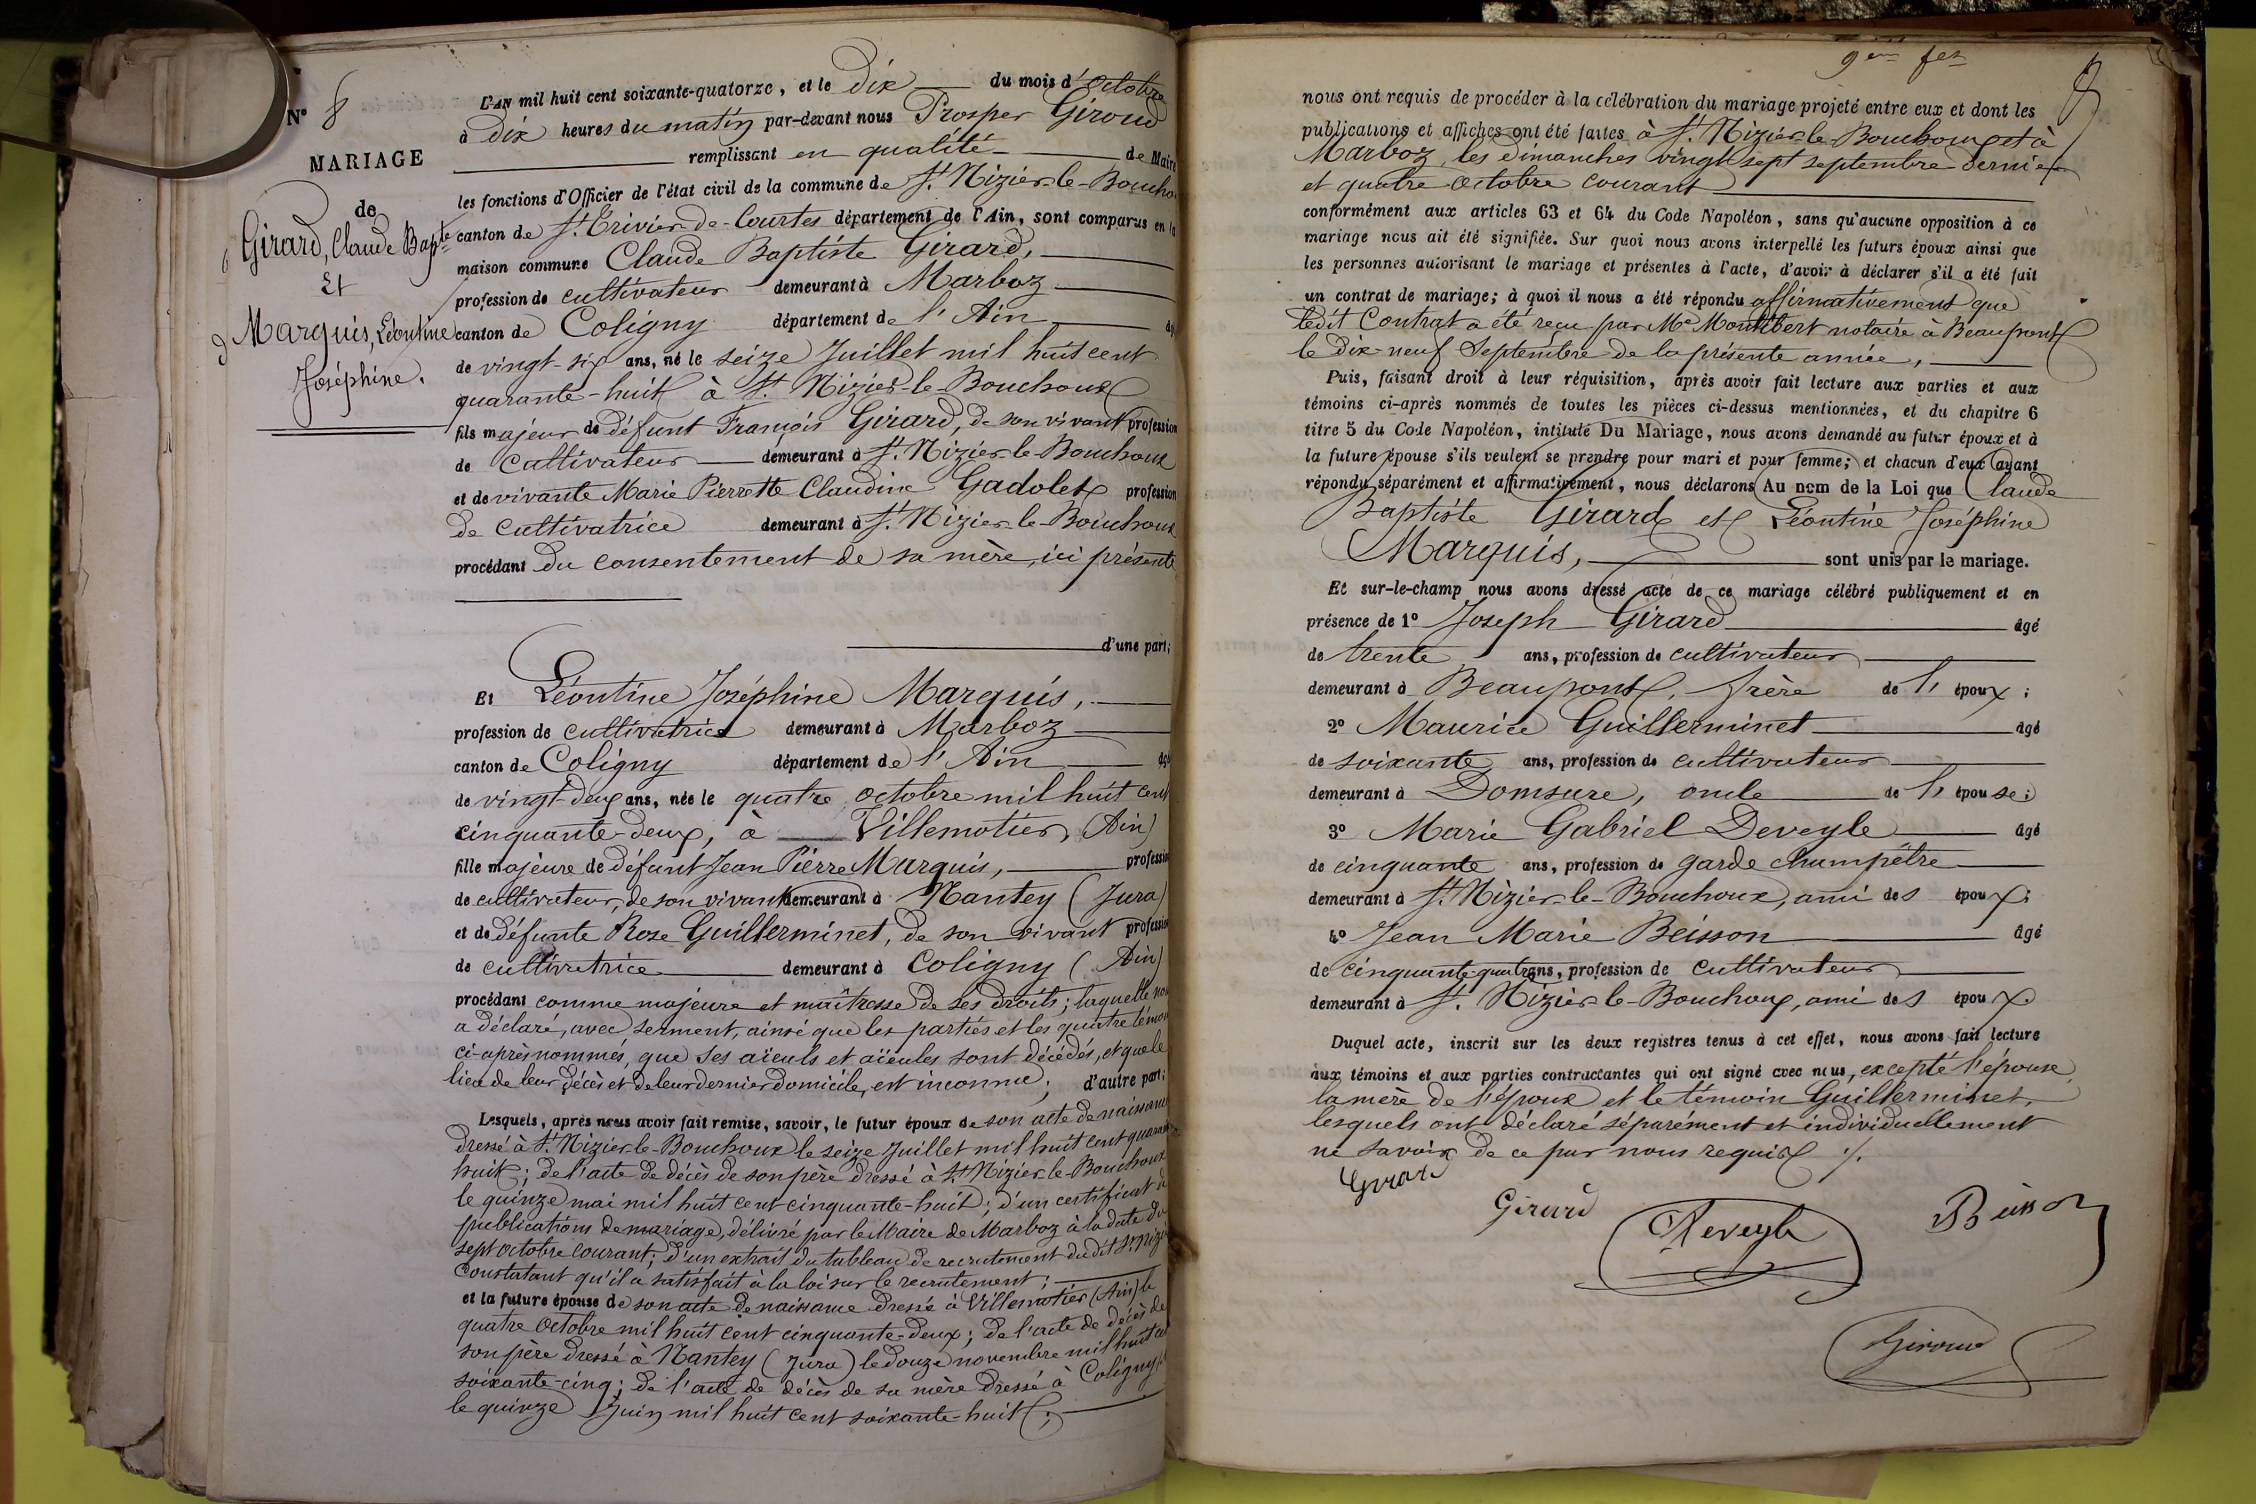 N° 8
MARIAGE
de
Girard, Claude Bapte
Et
Marquis, Léontine
Joséphine.
L'AN mil huit cent soixante-quatorze, et le Dix du mois d'Octobre
à Dix heures du matin par-devant nous Prosper Giroud
remplissant en qualité de Maire
les fonctions d'Officier de l'état civil de la commune de St. Nizier-le-Boucho
canton de St. Trivier-de-Courtes département de l'Ain, sont comparus en la
maison commune Claude Baptiste Girard,
profession de cultivateur demeurant à Marboz
canton de Coligny département de l'Ain âgé
de vingt-six ans, né le seize Juillet mil huit cent
quarante-huit à St. Nizier-le-Bouchoux
fils majeur de défunt François Girard, de son vivant profession
de Cultivateur demeurant à St. Nizier-le-Bouchoux
et de vivante Marie Pierrette Claudine Gadolet profession
de cultivatrice demeurant à St. Nizier-le-Bouchoux
procédant du consentement de sa mère, ici présente
d'une part;
Et Léontine Joséphine Marquis,
profession de cultivatrice demeurant à Marboz
canton de Coligny département de l'Ain âgé
de vingt-deux ans, née le quatre octobre mil huit cent
cinquante-deux, à Villemotier (Ain)
fille majeure de défunt Jean Pierre Marquis, profession
de cultivateur, de son vivant demeurant à Nantey (Jura)
et de défunte Rose Guillerminet, de son vivant profession
de cultivatrice demeurant à Coligny (Ain)
procédant comme majeure et maîtresse de ses droits; laquelle nou
a déclaré, avec serment, ainsi que les parties et les quatre témoi
ci-après nommés, que ses aïeuls et aïeules sont décédés, et que le
lieu de leur décès et de leur dernier domicile, est inconnu; d'autre part;
Lesquels, après nous avoir fait remise, savoir, le futur époux de son acte de naissance
dressé à St. Nizier-le-Bouchoux le seize Juillet mil huit cent quarante
huit; de l'acte de décès de son père dressé à St. Nizier-le-Bouchoux
le quinze mai mil huit cent cinquante-huit; d'un certificat de
publications de mariage, délivré par le Maire de Marboz à la date du
sept octobre courant; d'un extrait du tableau de recrutement du dit St. Nizi
Constatant qu'il a satisfait à la loi sur le recrutement;
et la future épouse de son acte de naissance dressé à Villemotier (Ain) le
quatre Octobre mil huit cent cinquante-deux; de l'acte de décès de
son père dressé à Nantey (Jura) le douze novembre mil huit cent
soixante-cinq; de l'acte de décès de sa mère dressé à Coligny
le quinze Juin mil huit cent soixante-huit;
9em fet
nous ont requis de procéder à la célébration du mariage projeté entre eux et dont les
publications et affiches ont été faites à St. Nizier-le-Bouchoux et à
Marboz, les dimanches vingt-sept septembre dernier
et quatre Octobre courant
conformément aux articles 63 et 64 du Code Napoléon, sans qu'aucune opposition à ce
mariage nous ait été signifiée. Sur quoi nous avons interpellé les futurs époux ainsi que
les personnes autorisant le mariage et présentes à l'acte, d'avoir à déclarer s'il a été fait
un contrat de mariage; à quoi il nous a été répondu affirmativement que
ledit Contrat a été reçu par Me Montbert notaire à Beaupont
le Dix-neuf Septembre de la présente année,
Puis, faisant droit à leur réquisition, après avoir fait lecture aux parties et aux
témoins ci-après nommés de toutes les pièces ci-dessus mentionnées, et du chapitre 6
titre 5 du Code Napoléon, intitulé Du Mariage, nous avons demandé au futur époux et à
la future épouse s'ils veulent se prendre pour mari et pour femme; et chacun d'eux ayant
répondu séparément et affirmativement, nous déclarons Au nom de la Loi que Claude
Baptiste Girard et Léontine Joséphine
Marquis, sont unis par le mariage.
Et sur-le-champ nous avons dressé acte de ce mariage célébré publiquement et en
présence de 1° Joseph Girard âgé
de trente ans, profession de cultivateur
demeurant à Beaupont, frère de l' époux;
2° Maurice Guillerminet âgé
de soixante ans, profession de cultivateur
demeurant à Domsure, oncle de l' épouse;
3° Marie Gabriel Deveyle âgé
de cinquante ans, profession de garde champêtre
demeurant à St. Nizier-le-Bouchoux, ami des époux;
4° Jean Marie Beisson âgé
de cinquante-quatre ans, profession de cultivateur
demeurant à St. Nizier-le-Bouchoux, ami des époux.
Duquel acte, inscrit sur les deux registres tenus à cet effet, nous avons fait lecture
aux témoins et aux parties contractantes qui ont signé avec nous, excepté l'épouse,
la mère de l'époux et le témoin Guillerminet,
lesquels ont déclaré séparément et individuellement
ne savoir de ce par nous requis ./.
Girard
Girard
Deveyle
Beisson
Giroud